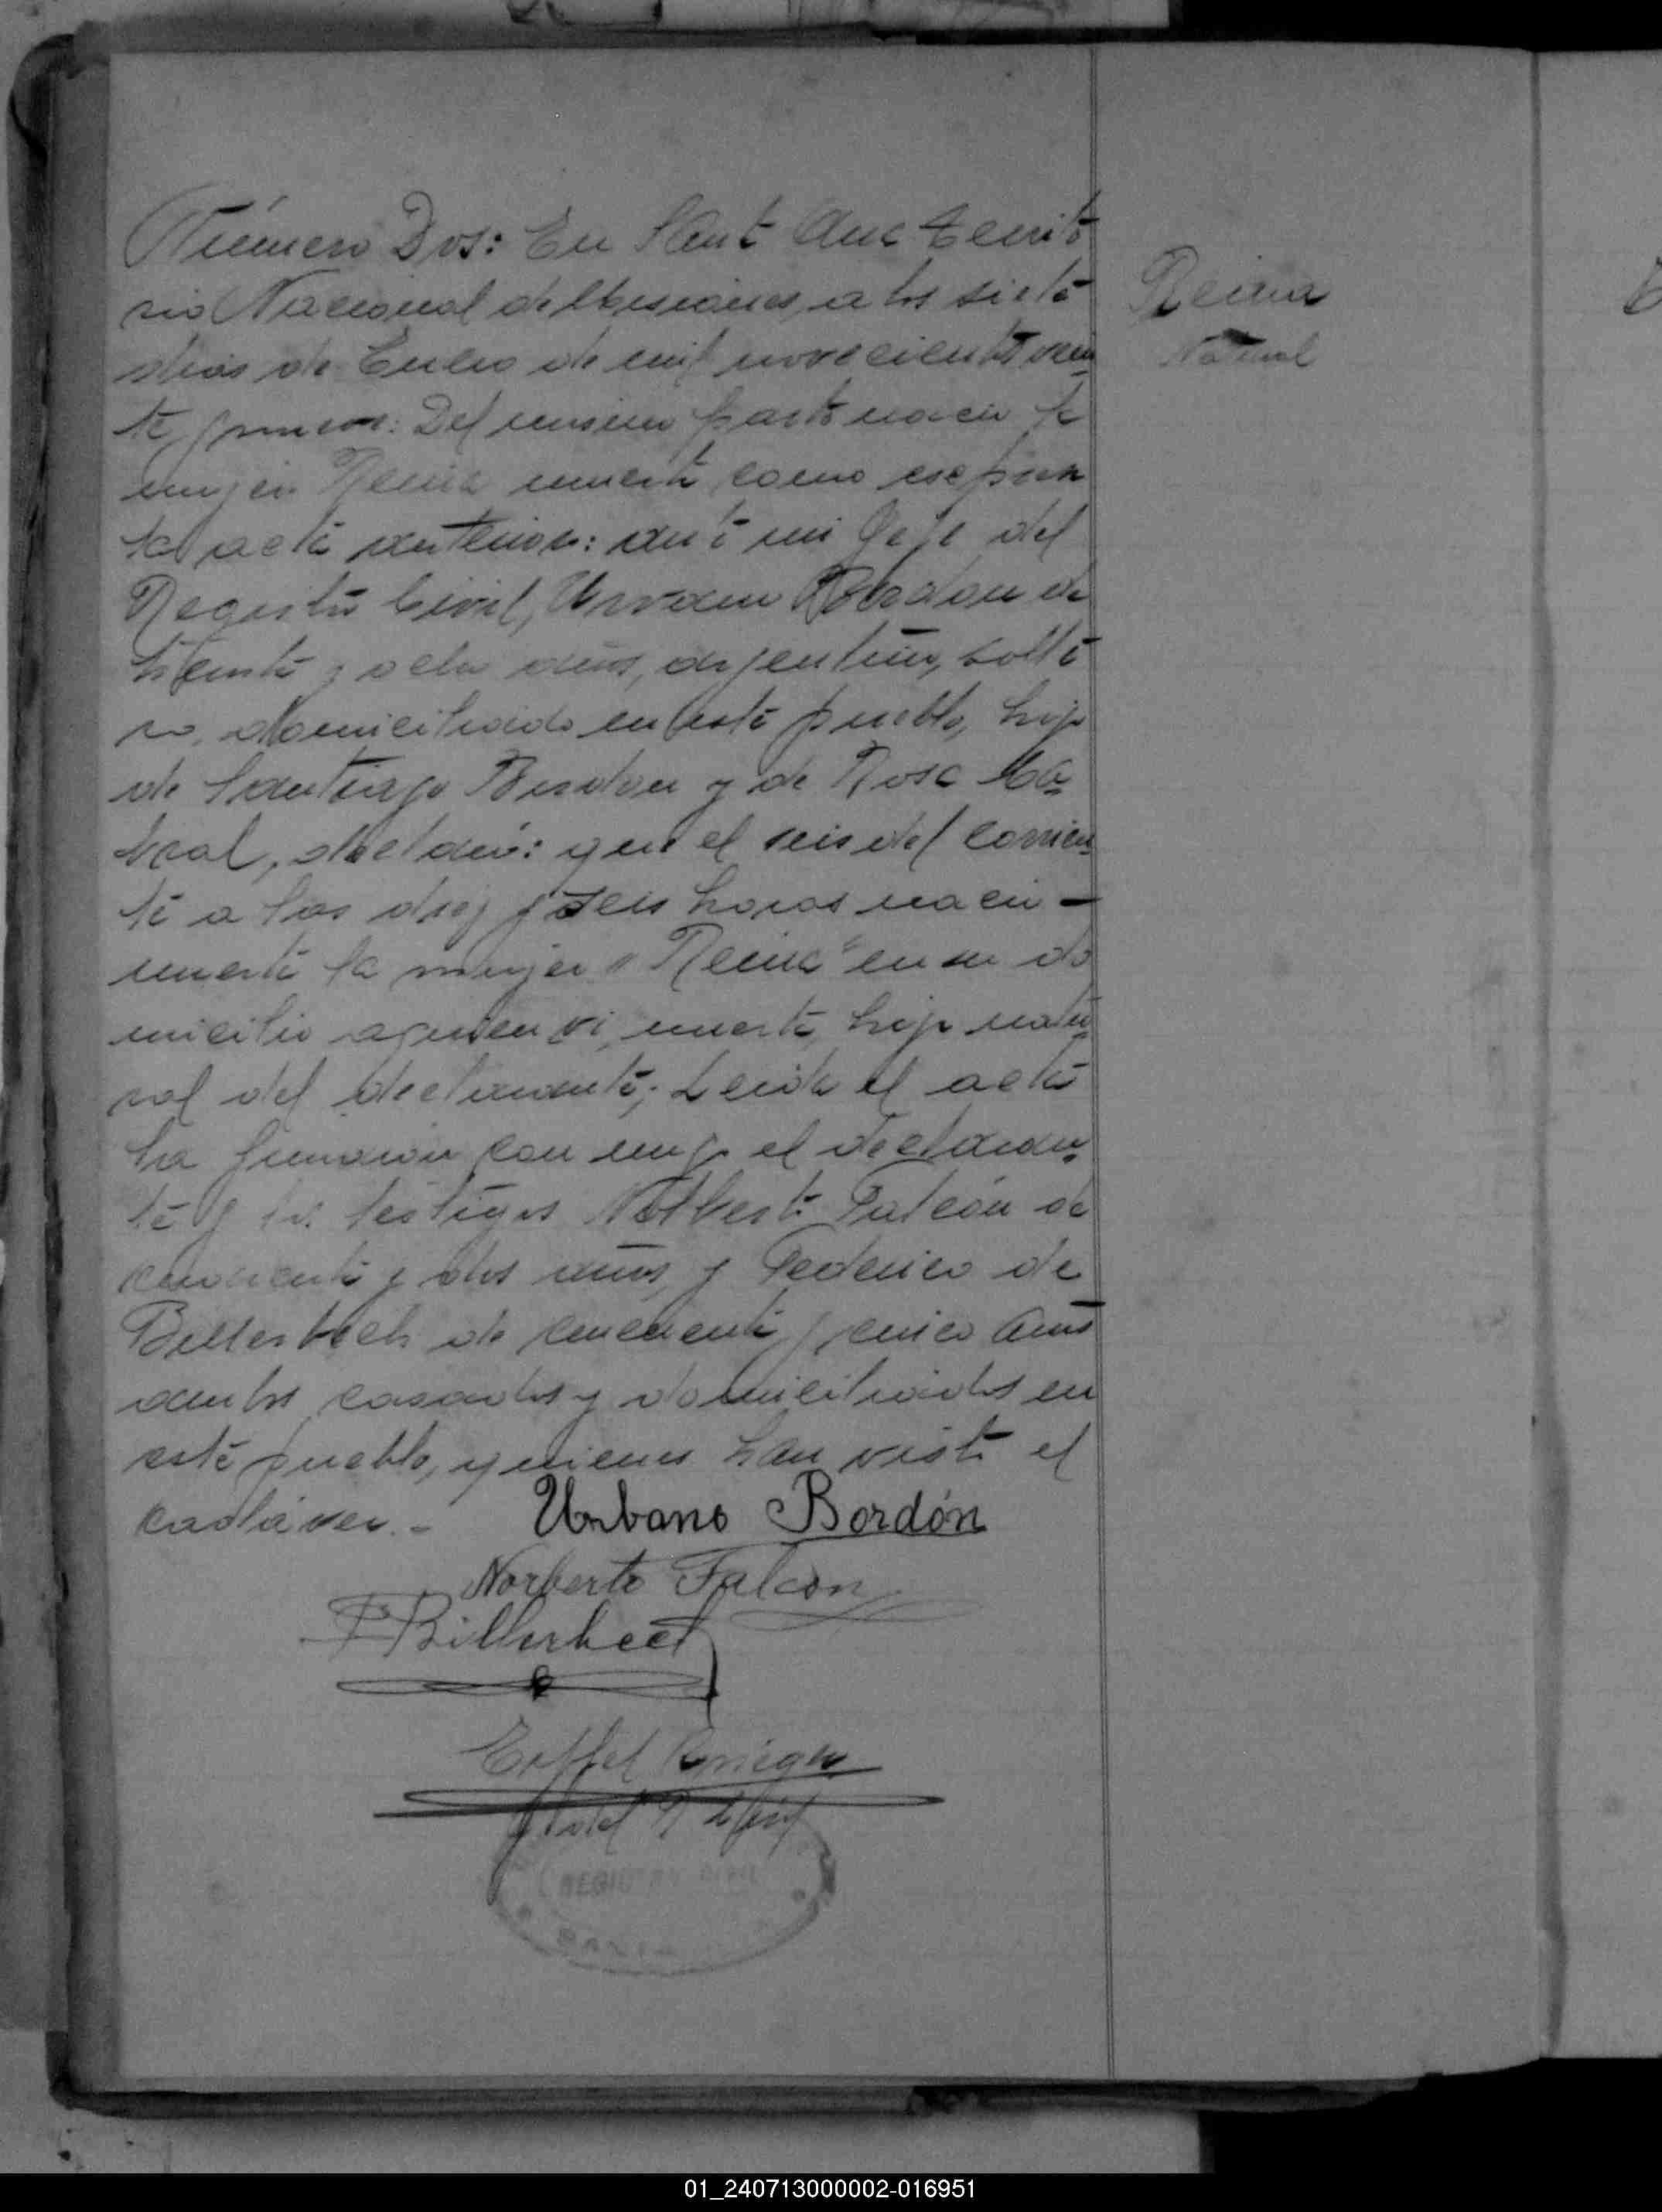 Número Dos: En Sant Ana Territo
rio Nacional de Misiones, a los siete
dias de Enero de mil novecientos vein
te y
Del mismo parto nació la
mujer Reina muerta como
acta anterior: ante mi Jefe del
Registro Civil, Urvano Bordon de
treinta y ocho años, argentino, solte
ro, domiciliado en este pueblo, hijo
de Santiago Bordon y de Rosa Ca=
bral, declaró: que el seis del corrien
te a las diez y seis horas nació -
muerta la mujer "Reina" en su do
micilio muerta, hija natu
ral del declarante; Leida el acta
la firmaron con migo el declaran=
te y los testigos Norberto Falcón de
cuarenta y dos años, y Federico de
Billerbeck de cincuenta y cinco años
ambos casados y domiciliados en
este pueblo, quienes han visto el
cadáver. -
Urbano Bordón
Norberto Falcon
F Billerbeck
J. del R. Civil
REGISTRO CIVIL
Reina
Natural
01_240713000002-016951